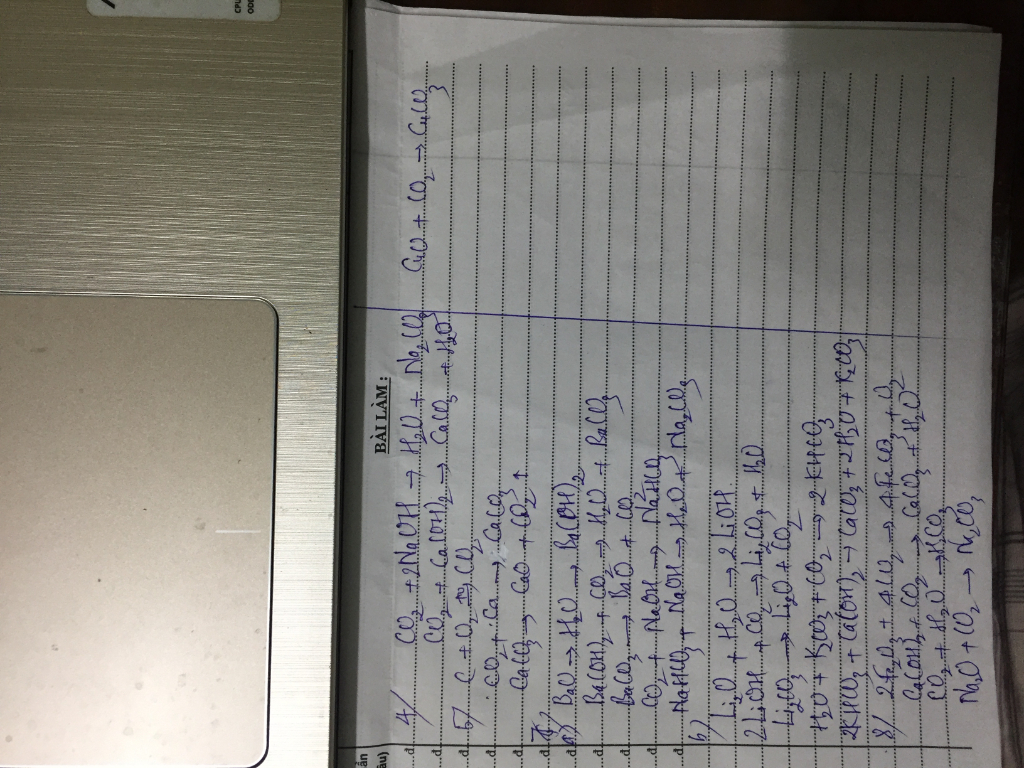 BÀI LÀM :
4/ CO2 + 2NaOH → H2O + Na2CO3
CuO + CO2 → CuCO3
CO2 + Ca(OH)2 → CaCO3 + H2O
5/ C + O2 → CO2
CO2 + Ca → CaCO3
CaCO3 → CaO + CO2 ↑
a) BaO → H2O → Ba(OH)2
Ba(OH)2 + CO2 → H2O + BaCO3
BaCO3 → BaO + CO2
CO2 + NaOH → NaHCO3
NaHCO3 + NaOH → H2O + Na2CO3
b)
Li2O + H2O → 2LiOH
2LiOH + CO2 → Li2CO3 + H2O
Li2CO3 → Li2O + CO2
H2O + K2CO3 + CO2 → 2KHCO3
2KHCO3 + Ca(OH)2 → CaCO3 + 2H2O + K2CO3
8/ 2Fe2O3 + 4CO2 → 4FeCO3 + O2
CO2 → CaCO3 + H2O
CO2 + H2O → H2CO3
Na2O + CO2 → Na2CO3